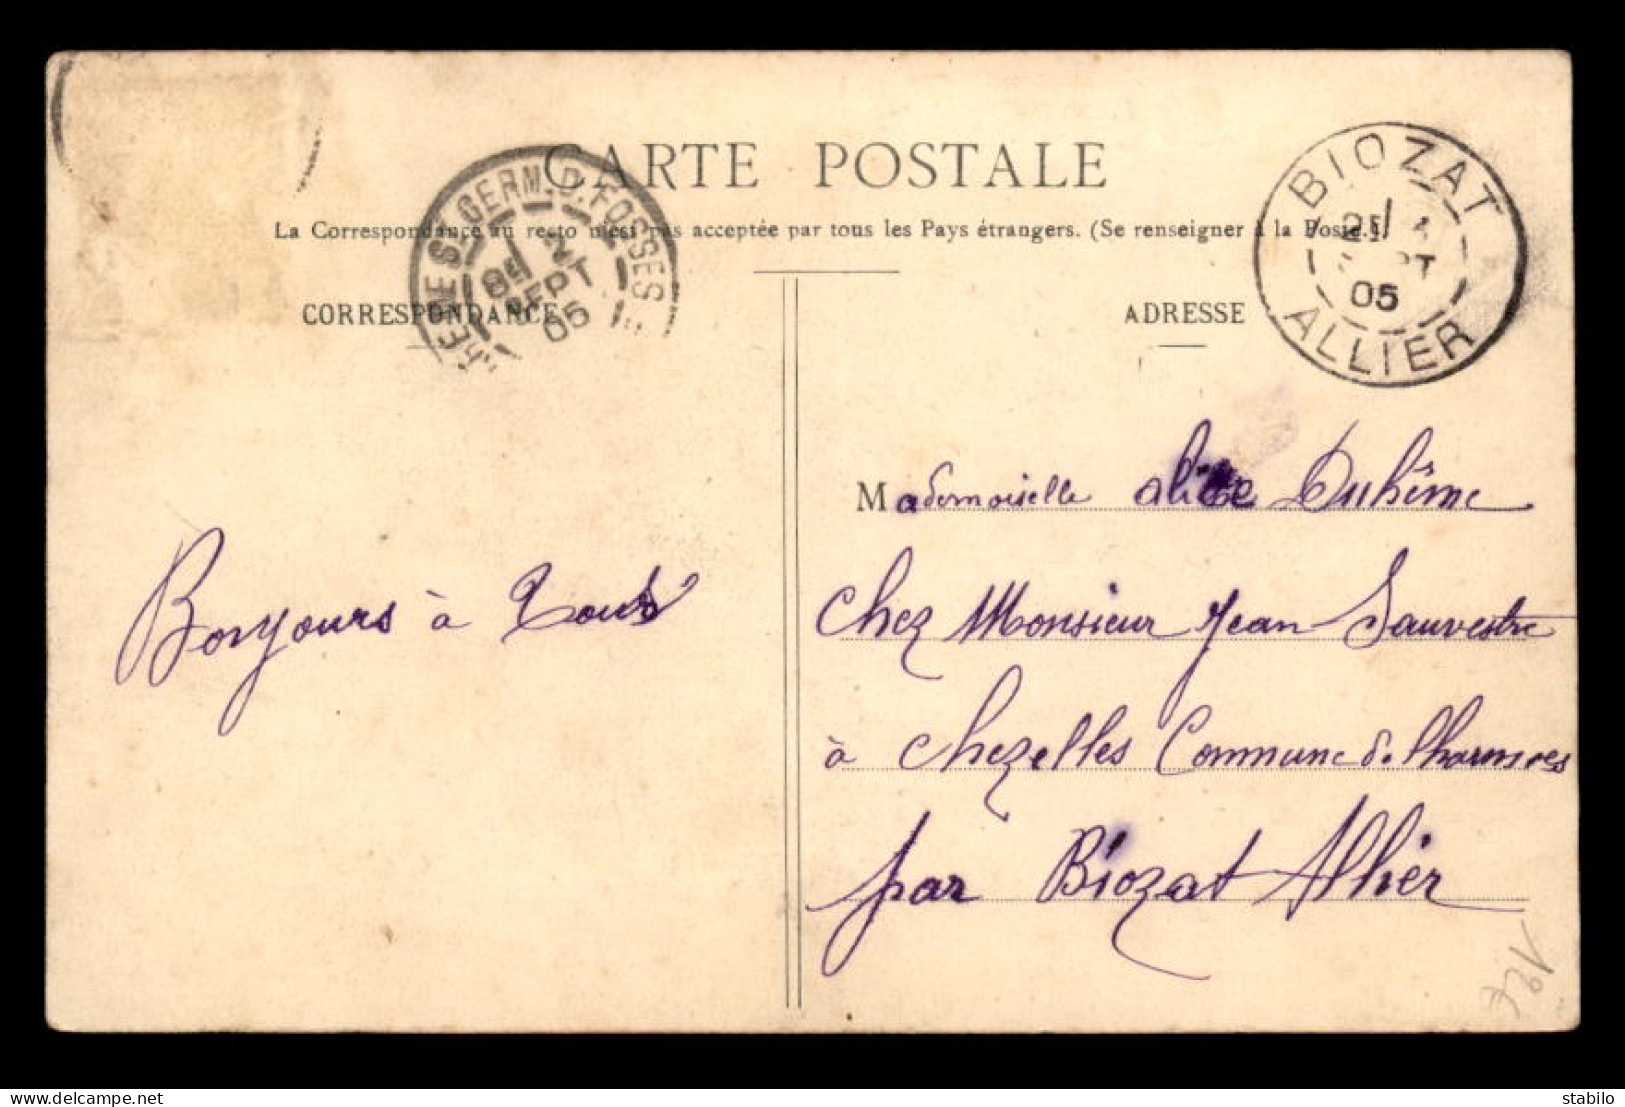 CARTE POSTALE
La Correspondance au recto n'est pas acceptée par tous les Pays étrangers. (Se renseigner à la Poste.)
CORRESPONDANCE
ADRESSE
ST GERM. D. FOSSES
SEPT
05
BIOZAT
05
ALLIER
Bonjours à Tous
Mademoiselle alice Duhême
Chez Monsieur Jean Sauvestre
à Chezelles Commune de Charmes
par Biozat Allier
www.delcampe.net
stabilo